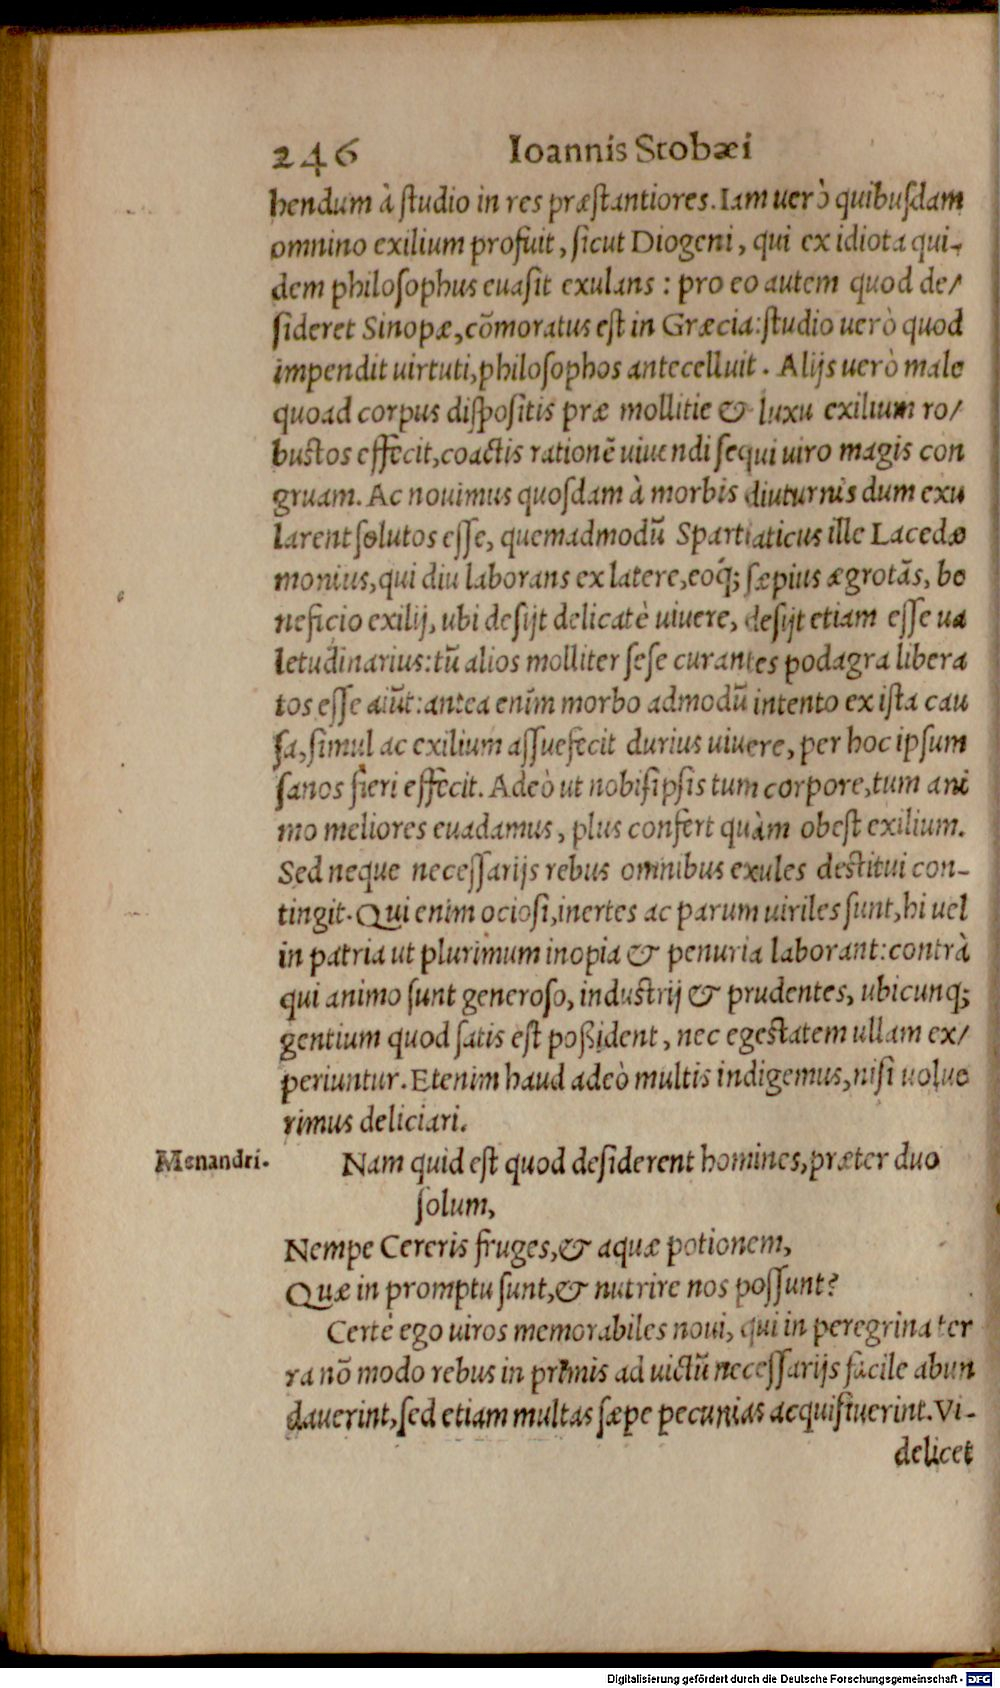 246 Ioannis Stobæi
hendum à ſtudio in res præſtantiores. Iam uerò quibuſdam
omnino exilium profuit, ſicut Diogeni, qui ex idiota qui-
dem philoſophus euaſit exulans : pro eo autem quod de/
ſideret Sinopæ, cõmoratus eſt in Græcia: ſtudio uerò quod
impendit uirtuti, philoſophos antecelluit. Alijs uerò male
quoad corpus diſpoſitis præ mollitie & luxu exilium ro/
buſtos effecit, coactis rationẽ uiuendi ſequi uiro magis con
gruam. Ac nouimus quoſdam à morbis diuturnis dum exu
larent ſolutos eſſe, quemadmodũ Spartiaticus ille Lacedæ
monius, qui diu laborans ex latere, eoq́; ſæpius ægrotãs, be
neficio exilij, ubi deſijt delicatè uiuere, deſijt etiam eſſe ua
letudinarius: tũ alios molliter ſeſe curantes podagra libera
tos eſſe aiũt: antea enim morbo admodũ intento ex iſta cau
ſa, ſimul ac exilium aſſuefecit durius uiuere, per hoc ipſum
ſanos fieri effecit. Adeò ut nobiſipſis tum corpore, tum ani
mo meliores euadamus, plus confert quàm obeſt exilium.
Sed neque neceſſarijs rebus omnibus exules deſtitui con-
tingit. Qui enim ocioſi, inertes ac parum uiriles ſunt, hi uel
in patria ut plurimum inopia & penuria laborant: contrà
qui animo ſunt generoſo, induſtrij & prudentes, ubicunq;
gentium quod ſatis eſt poßident, nec egeſtatem ullam ex/
periuntur. Etenim haud adeò multis indigemus, niſi uolue
rimus deliciari.
Menandri. Nam quid eſt quod deſiderent homines, præter duo
ſolum,
Nempe Cereris fruges, & aquæ potionem,
Quæ in promptu ſunt, & nutrire nos poſſunt?
Certè ego uiros memorabiles noui, qui in peregrina ter
ra nõ modo rebus in primis ad uictũ neceſſarijs facile abun
dauerint, ſed etiam multas ſæpe pecunias acquiſiuerint. Vi-
delicet
Digitalisierung gefördert durch die Deutsche Forschungsgemeinschaft - DFG